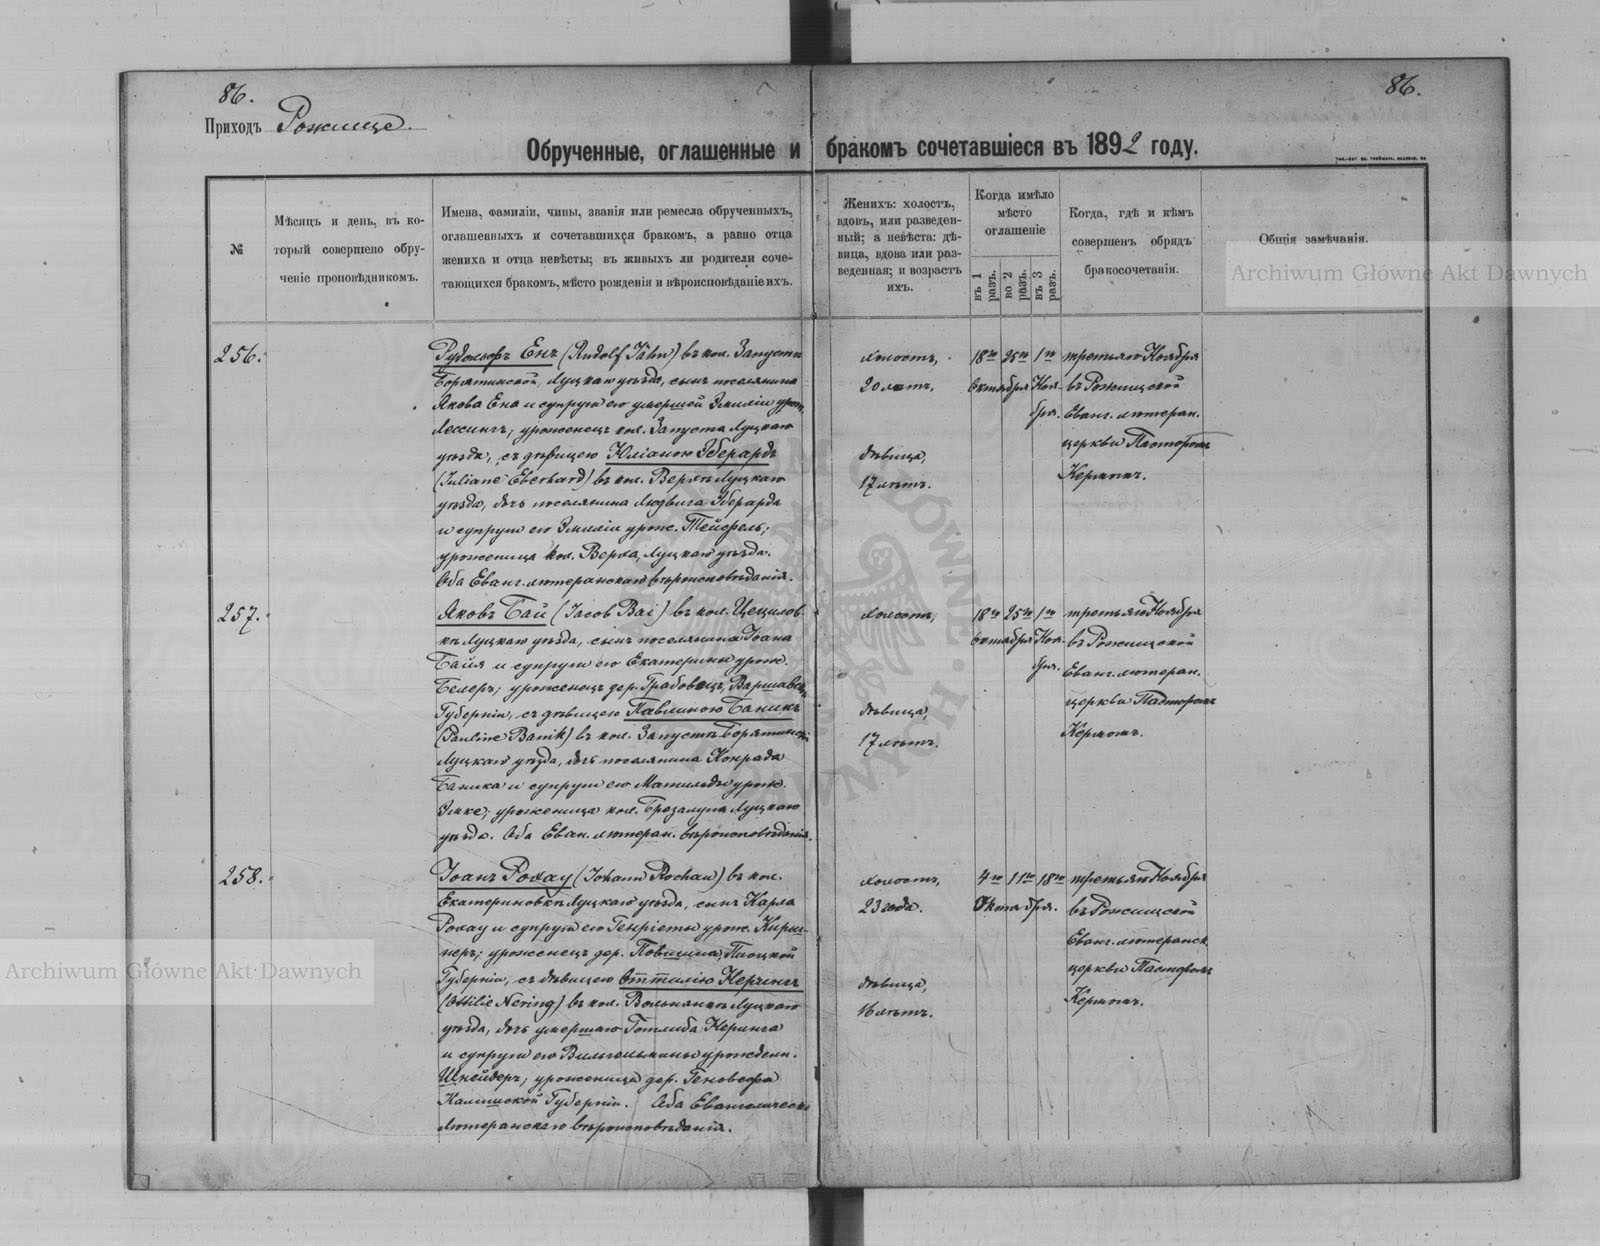 86.
86.
Приходъ Рожище.
Обрученные, оглашенные и бракомъ сочетавшіеся въ 1892 году.
№
Мѣсяцъ и день, въ ко-
торый совершено обру-
ченіе проповѣдникомъ.
Имена, фамиліи, чины, званія или ремесла обрученныхъ,
оглашенныхъ и сочетавшихся бракомъ, а равно отца
жениха и отца невѣсты; въ живыхъ ли родители соче-
тающихся бракомъ, мѣсто рожденія и вѣроисповѣданіе ихъ.
Женихъ: холостъ,
вдовъ, или разведен-
ный; а невѣста: дѣ-
вица, вдова или раз-
веденная; и возрастъ
ихъ.
Когда имѣло
мѣсто
оглашеніе
въ 1 разъ.
во 2 разъ.
въ 3 разъ.
Когда, гдѣ и кѣмъ
совершенъ обрядъ
бракосочетанія.
Общія замѣчанія.
256.
Рудольфъ Енъ (Rudolf Jähn) въ кол. Запустъ
Борятинской, Луцкаго уѣзда, сынъ поселянина
Якова Ена и супруги его умершей Эмиліи урож.
Лессингъ; уроженецъ кол. Запуста Луцкаго
уѣзда, съ дѣвицею Юліаною Эберардъ
(Juliane Eberhard) въ кол. Верхъ Луцкаго
уѣзда, дочь поселянина Людвига Эберарда
и супруги его Эмиліи урож. Тейфель;
уроженица кол. Верха, Луцкаго уѣзда.
Оба Еванг. лютеранскаго вѣроисповѣданія.
холостъ,
20 лѣтъ,
дѣвица,
17 лѣтъ.
18го 25го 1го
Октября Ноя-
бря.
третьяго Ноября
въ Рожищской
Еванг. лютеран.
церкви Пасторомъ
Кермомъ.
257.
Яковъ Бай (Jacob Bai) въ кол. Цецилов-
кѣ Луцкаго уѣзда, сынъ поселянина Іоана
Байя и супруги его Екатерины урож.
Белеръ; уроженецъ дер. Грабовецъ, Варшавск.
Губерніи, съ дѣвицею Павлиною Баникъ
(Pauline Banik) въ кол. Запустъ Борятинск.
Луцкаго уѣзда, дочь поселянина Конрада
Баника и супруги его Матильды урож.
Эмке; уроженица кол. Луцкаго
уѣзда. Оба Еван. лютеран. вѣроисповѣданія.
холостъ,
дѣвица,
17 лѣтъ.
18го 25го 1го
Октября Ноя-
бря.
третьяго Ноября
въ Рожищской
Еванг. лютеран.
церкви Пасторомъ
Кермомъ.
258.
Іоанъ Рохау (Johann Rochau) въ кол.
Екатериновкѣ Луцкаго уѣзда, сынъ Карла
Рохау и супруги его Генріеты урож. Кирш-
неръ; уроженецъ дер. Плоцкой
Губерніи, съ дѣвицею Оттиліею Нерингъ
(Ottilie Nering) въ кол. Вольнянкѣ Луцкаго
уѣзда, дочь умершаго Готлиба Неринга
и супруги его Вильгельмины урожден.
Шнейдеръ; уроженица дер. Геновефа
Калишской Губерніи. Оба Евангелическо
лютеранскаго вѣроисповѣданія.
холостъ,
23 года.
дѣвица,
16 лѣтъ.
4го 11го 18го
Октября.
третьяго Ноября
въ Рожищской
Еванг. лютеранск.
церкви Пасторомъ
Кермомъ.
Archiwum Główne Akt Dawnych
Archiwum Główne Akt Dawnych